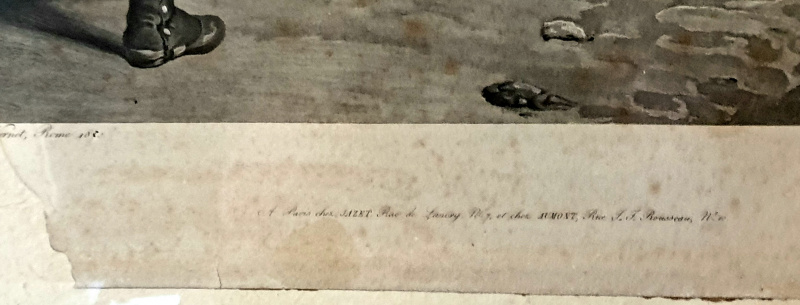 rnet, Rome 18
A Paris chez JAZET Rue de Lancry N.º 7, et chez AUMONT, Rue J. J. Rousseau, N.º 10